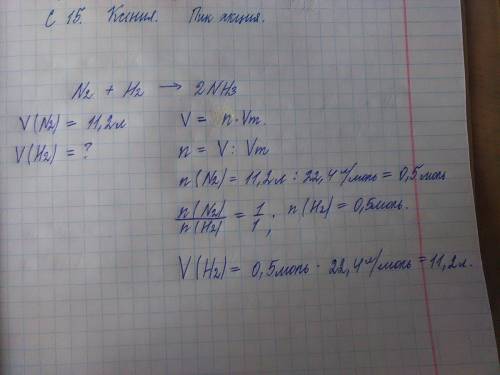 с 15. Ксения. Пик акция.
N2 + H2 → 2NH3
V(N2) = 11,2л
V(H2) = ?
V = n·Vm.
n = V : Vm
n(N2) = 11,2л : 22,4л/моль = 0,5моль
n(N2)/n(H2) = 1/1; n(H2) = 0,5моль.
V(H2) = 0,5моль · 22,4л/моль = 11,2л.